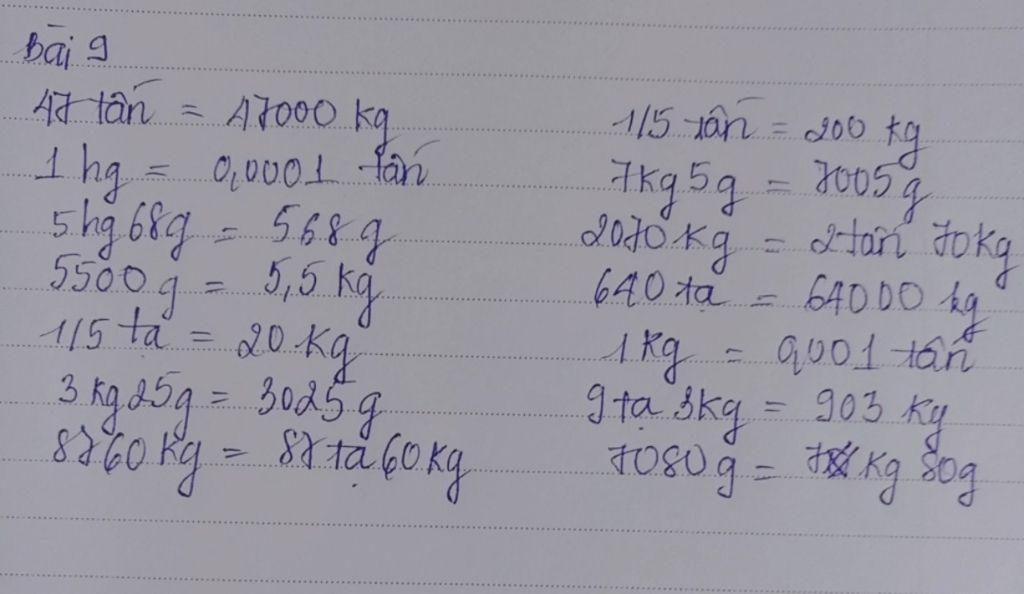 Bài 9
47 tấn = 47000 kg
1 hg = 0,0001 tấn
5 hg 68g = 568 g
5500 g = 5,5 kg
1/5 tạ = 20 kg
3 kg 25g = 3025 g
8760 kg = 87 tạ 60 kg
1/5 tấn = 200 kg
7kg 5g = 7005 g
2070 kg = 2 tấn 70 kg
640 tạ = 64000 kg
1 kg = 0,001 tấn
9 tạ 3kg = 903 kg
7080 g = 7 kg 80g